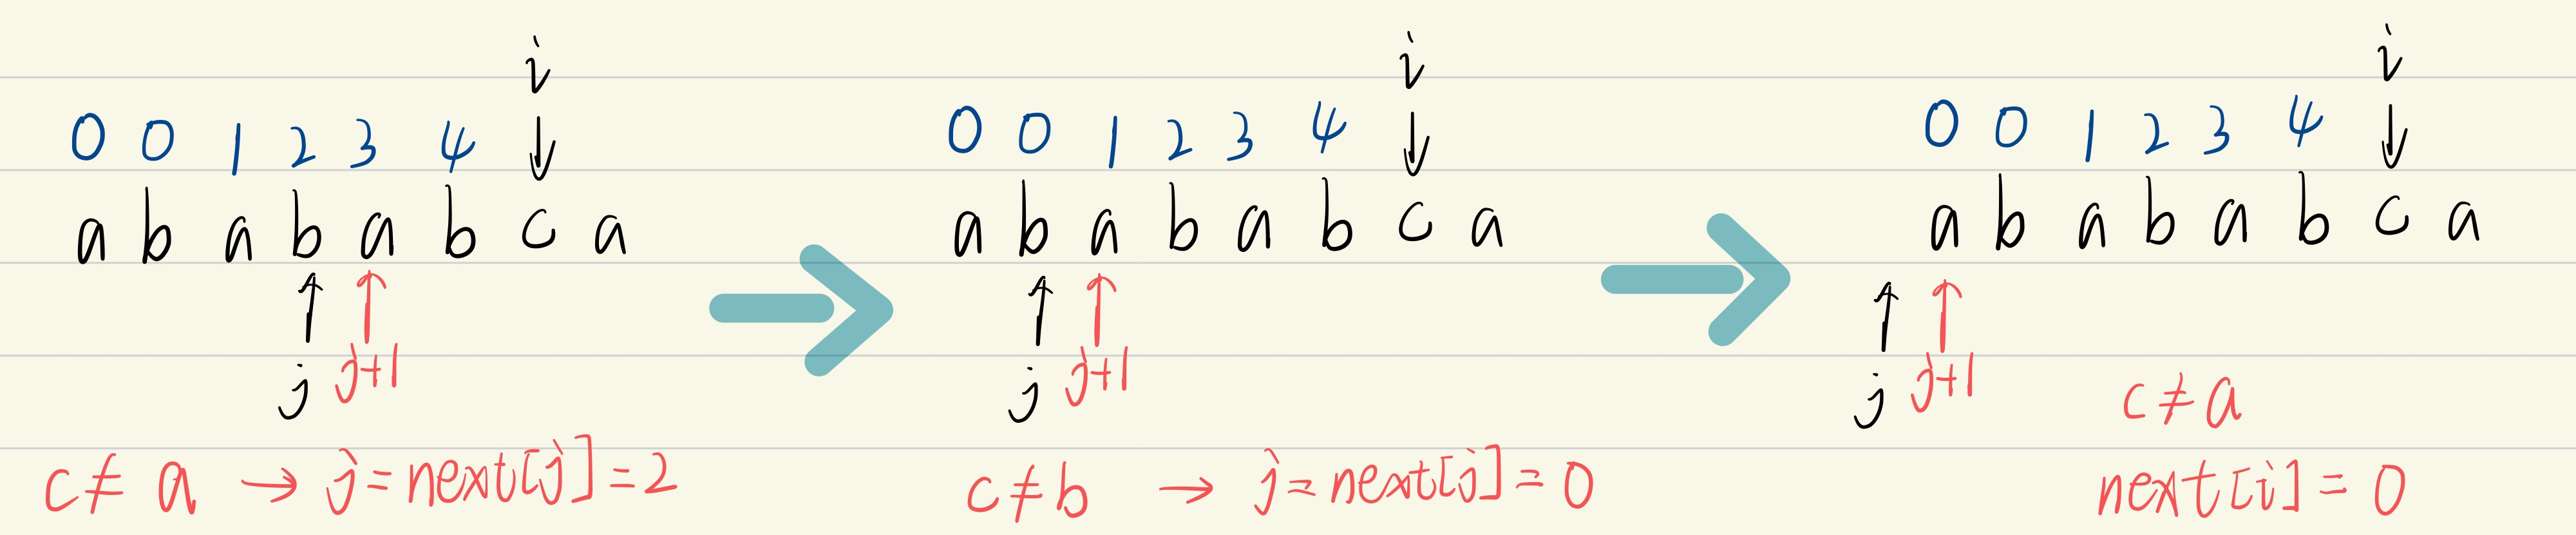 i
0 0 1 2 3 4
a b a b a b c a
j j+1
c ≠ a → j = next[j] = 2
i
0 0 1 2 3 4
a b a b a b c a
j j+1
c ≠ b → j = next[j] = 0
i
0 0 1 2 3 4
a b a b a b c a
j j+1
c ≠ a
next[i] = 0